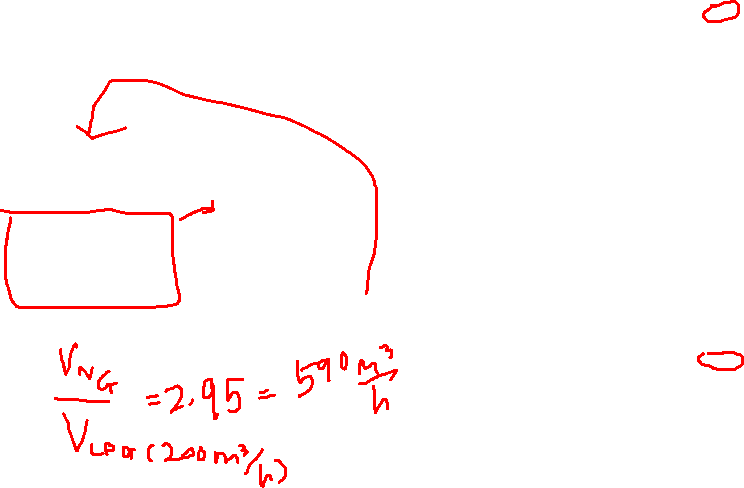 V_NG / V_LPG (200m³/h) = 2.95 = 590 m³/h